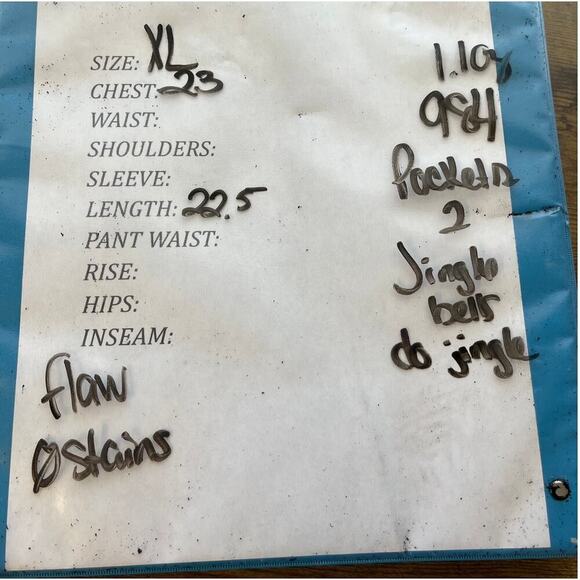 SIZE: XL
CHEST: 23
WAIST:
SHOULDERS:
SLEEVE:
LENGTH: 22.5
PANT WAIST:
RISE:
HIPS:
INSEAM:
flaw
Ø Stains
984
Pockets
2
Jingle
bells
do jingle